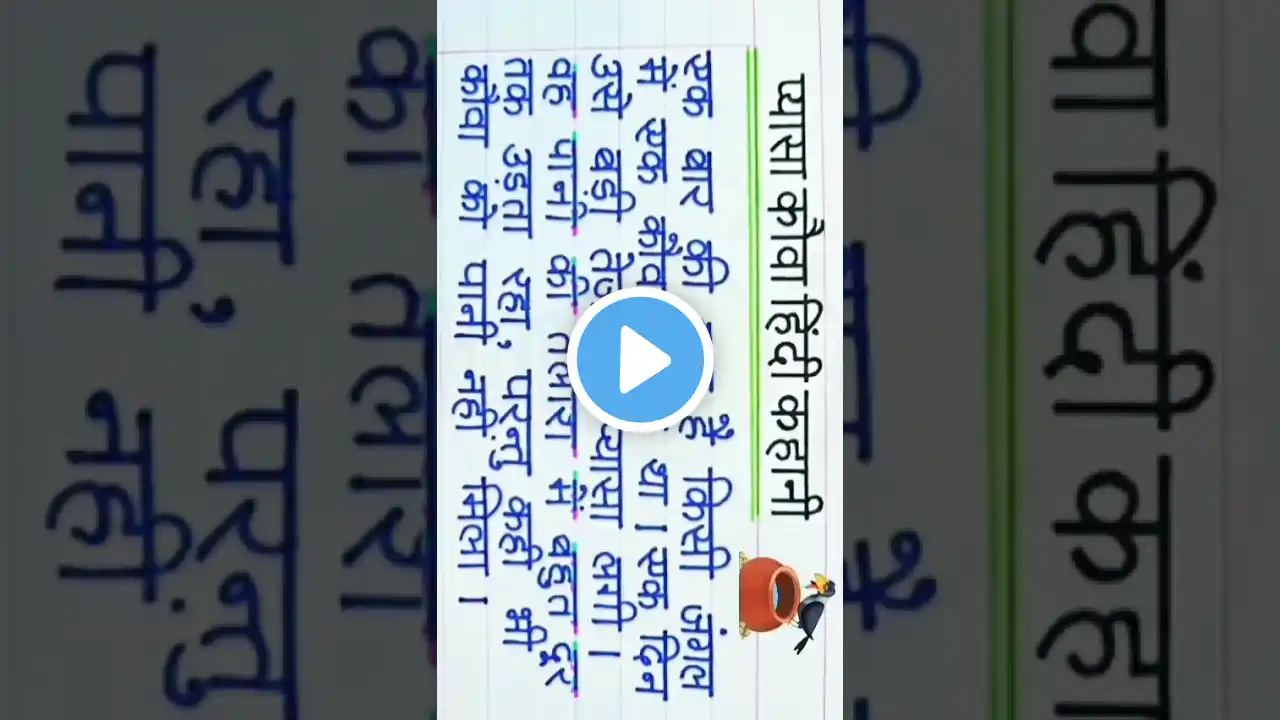 प्यासा कौवा हिंदी कहानी
एक बार की है किसी जंगल
में एक था। एक दिन
उसे बड़ी लगी।
वह पानी की तलाश में बहुत दूर
तक उड़ता रहा, परन्तु कही भी
कौवा को पानी नही मिला।